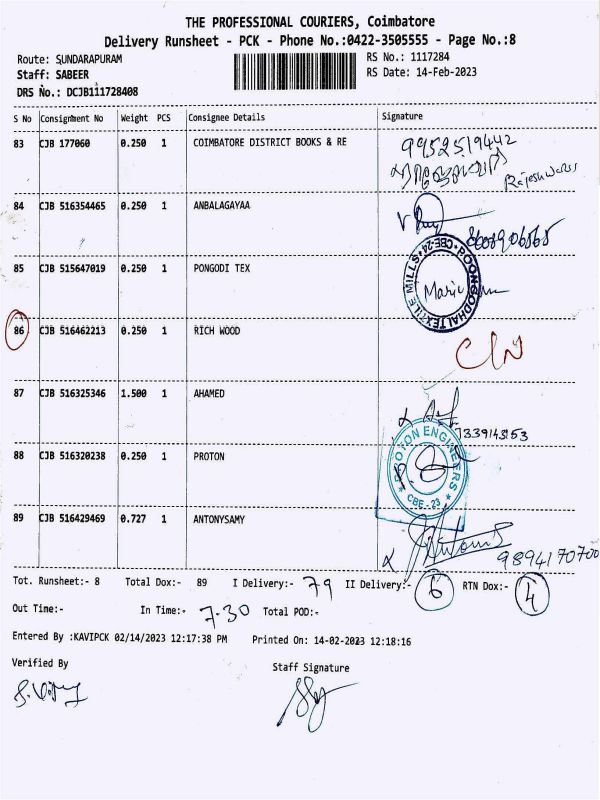 THE PROFESSIONAL COURIERS, Coimbatore
Delivery Runsheet - PCK - Phone No.:0422-3505555 - Page No.:8
Route: SUNDARAPURAM
Staff: SABEER
DRS No.: DCJB111728408
RS No.: 1117284
RS Date: 14-Feb-2023
S No Consignment No Weight PCS Consignee Details Signature
83 CJB 177060 0.250 1 COIMBATORE DISTRICT BOOKS & RE 9952519442
Rajeshwari
84 CJB 516354465 0.250 1 ANBALAGAYAA
85 CJB 515647019 0.250 1 PONGODI TEX
POONGODHAI TEXTILE MILLS CBE-24
86 CJB 516462213 0.250 1 RICH WOOD
C/N
87 CJB 516325346 1.500 1 AHAMED
88 CJB 516320238 0.250 1 PROTON
PROTON ENGINEERS
CBE - 23
89 CJB 516429469 0.727 1 ANTONYSAMY
9894170700
Tot. Runsheet:- 8 Total Dox:- 89 I Delivery:- 79 II Delivery:- 6 RTN Dox:- 4
Out Time:- In Time:- 7-30 Total POD:-
Entered By :KAVIPCK 02/14/2023 12:17:38 PM Printed On: 14-02-2023 12:18:16
Verified By
Staff Signature